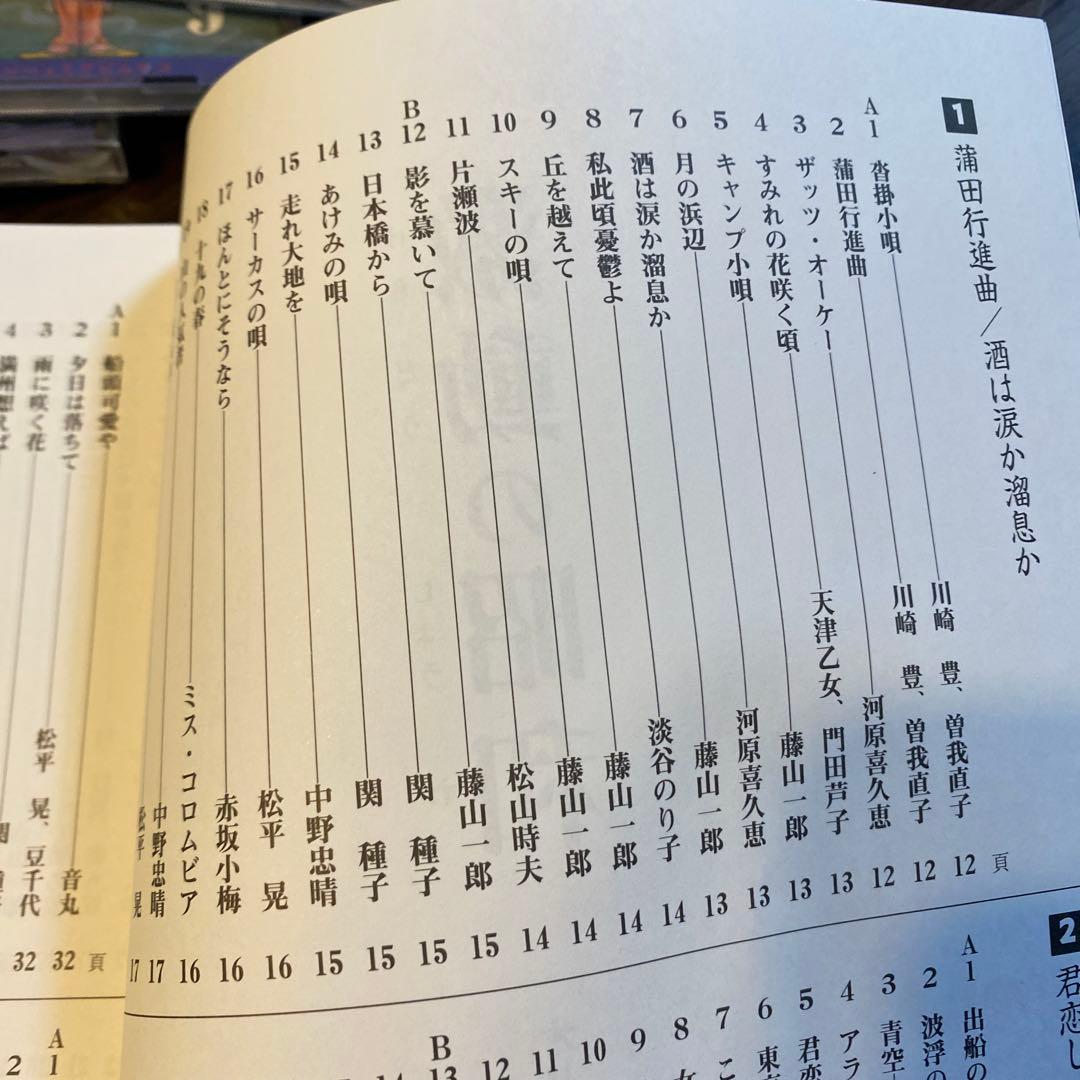 1 蒲田行進曲/酒は涙か溜息か
頁
A1 沓掛小唄 川崎 豊、曽我直子 12
2 蒲田行進曲 川崎 豊、曽我直子 12
3 ザッツ・オーケー 河原喜久恵 12
4 すみれの花咲く頃 天津乙女、門田芦子 13
5 キャンプ小唄 藤山一郎 13
6 月の浜辺 河原喜久恵 13
7 酒は涙か溜息か 藤山一郎 13
8 私此頃憂鬱よ 淡谷のり子 14
9 丘を越えて 藤山一郎 14
10 スキーの唄 藤山一郎 14
11 片瀬波 松山時夫 14
B12 影を慕いて 藤山一郎 15
13 日本橋から 関 種子 15
14 あけみの唄 関 種子 15
15 走れ大地を 中野忠晴 15
16 サーカスの唄 松平 晃 16
17 ほんとにそうなら 赤坂小梅 16
18 十九の春 ミス・コロムビア 16
中野忠晴 17
松平 晃 17
2 君恋し
A1 出船の
2 波浮の
3 青空
4 アラ
5 君恋
6 東京
7 こ
8 女
9
10
11
12
B13
14
頁
A1 船頭可愛や 音丸 32
2 夕日は落ちて 松平 晃、豆千代 32
3 雨に咲く花 関
4 満州想えば
A1
2